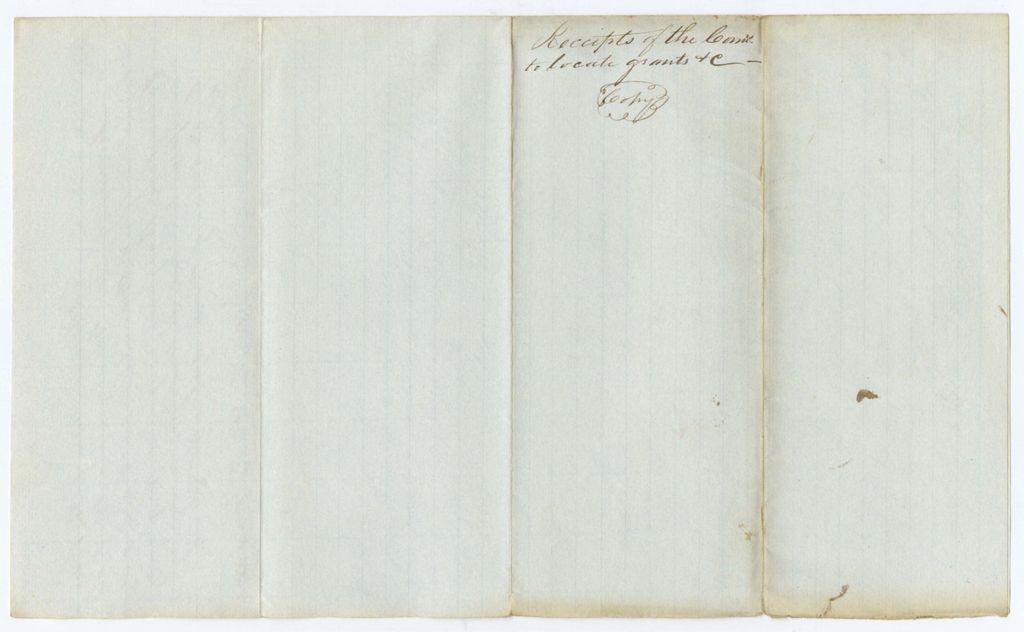 Receipts of the Comte
to locate grants &C —
Copy